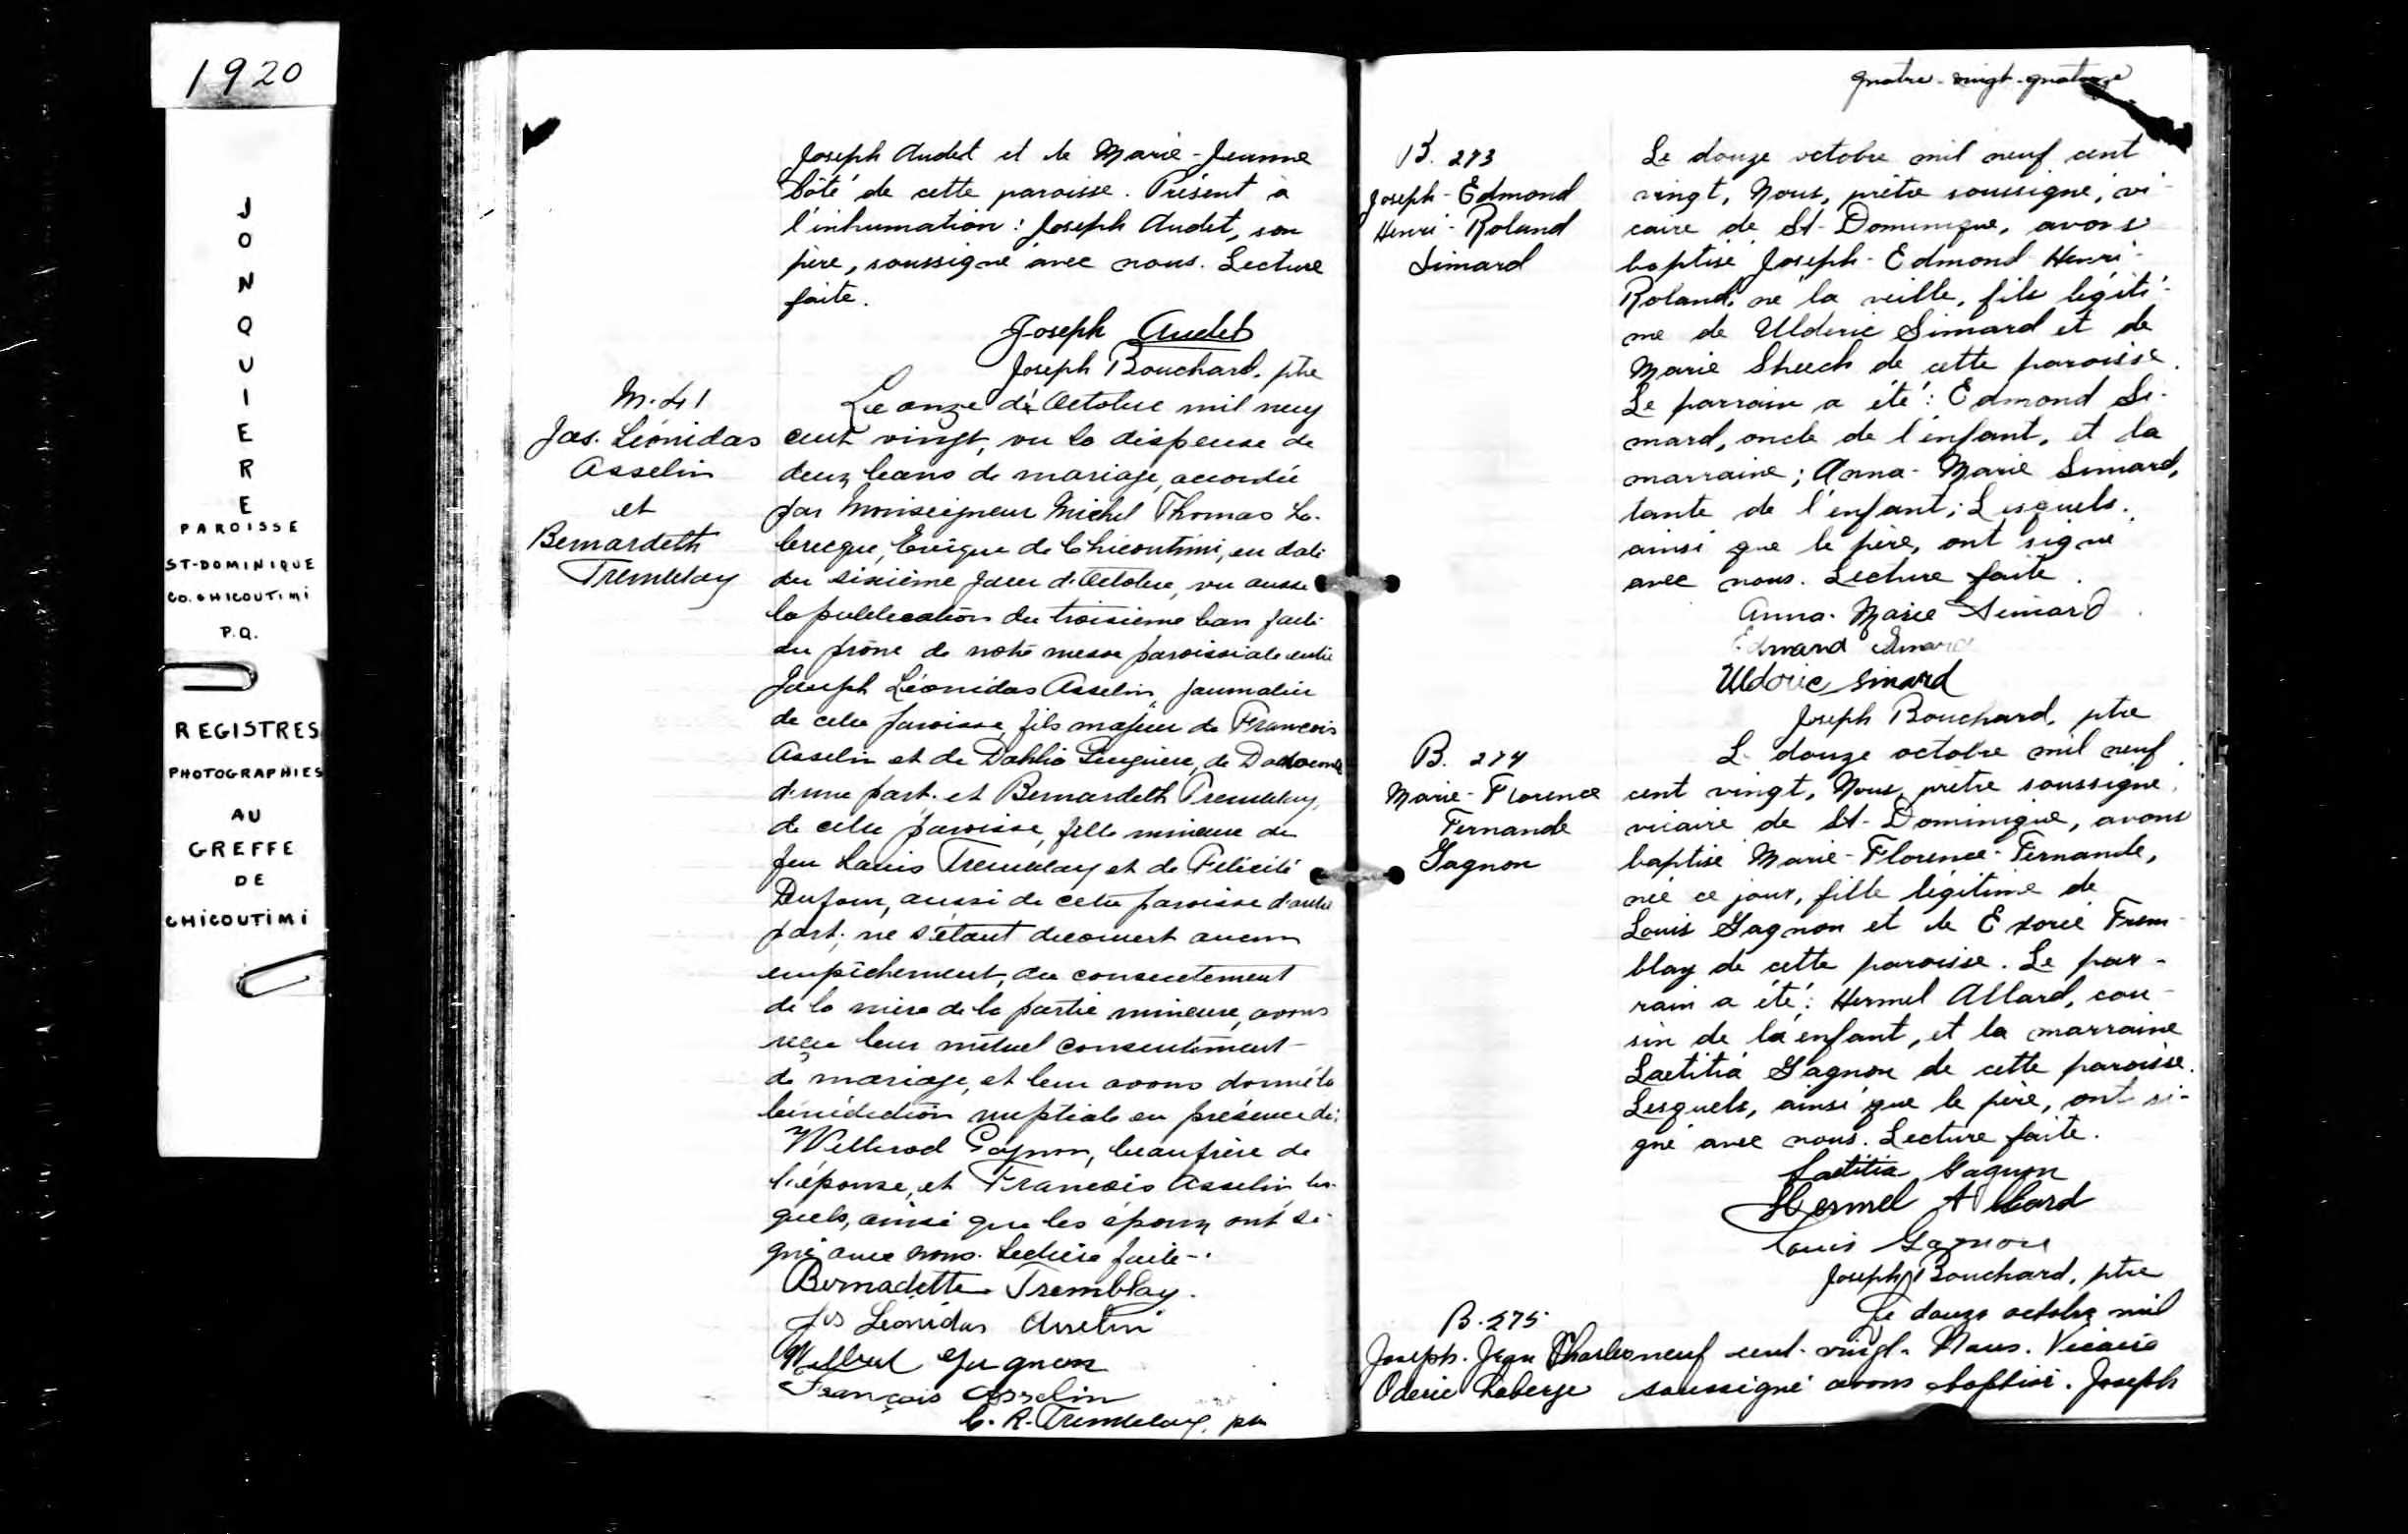 1920
J
O
N
Q
U
I
E
R
E
PAROISSE
ST-DOMINIQUE
CO. CHICOUTIMI
P.Q.
REGISTRES
PHOTOGRAPHIES
AU
GREFFE
DE
CHICOUTIMI
Joseph Audet et de Marie-Jeanne
Côté de cette paroisse. Présent à
l'inhumation: Joseph Audet, son
père, soussigné avec nous. Lecture
faite.
Joseph Audet
Joseph Bouchard, ptre
M. 41
Jos. Léonidas
Asselin
et
Bernardeth
Tremblay
Le onze d' Octobre mil neuf
cent vingt, vu la dispense de
deux bans de mariage, accordée
par Monseigneur Michel Thomas La-
brecque, Evêque de Chicoutimi, en date
du sixième jour d'Octobre, vu aussi
la publication du troisième ban faite
au prône de notre messe paroissiale entre
Joseph Léonidas Asselin, journalier
de cette paroisse, fils majeur de François
Asselin et de Dahlia
d'une part. et Bernardeth Tremblay,
de cette paroisse, fille mineure de
feu Louis Tremblay et de Félicité
Dufour, aussi de cette paroisse d'autre
part; ne s'étant découvert aucun
empêchement, du consentement
de la mère de la partie mineure, avons
reçu leur mutuel consentement
de mariage, et leur avons donné la
bénédiction nuptiale en présence de:
Willerod Gagnon, beaufrère de
l'épouse, et François Asselin les-
quels, ainsi que les époux, ont si-
gné avec nous. Lecture faite-.
Bernadette Tremblay.
Jos Leonidas Asselin
Gagnon
François Asselin
Tremblay, ptr
quatre-vingt-quatorze
B. 273
Joseph-Edmond
Henri-Roland
Simard
Le douze octobre mil neuf cent
vingt, Nous, prêtre soussigné, vi-
caire de St-Dominique, avons
baptisé Joseph-Edmond Henri-
Roland, né la veille, fils légiti-
me de Ulderic Simard et de
Marie Sheech de cette paroisse.
Le parrain a été: Edmond Si-
mard, oncle de l'enfant, et la
marraine; Anna-Marie Simard,
tante de l'enfant; Lesquels.
ainsi que le père, ont signé
avec nous. Lecture faite.
Anna-Marie Simard
Edmond Simard
Uldoric Simard
Joseph Bouchard, ptre
B. 274
Marie-Florence
Fernande
Gagnon
Le douze octobre mil neuf
cent vingt, Nous, prêtre soussigné,
vicaire de St-Dominique, avons
baptisé Marie-Florence-Fernande,
née ce jour, fille légitime de
Louis Gagnon et de Exorée Trem-
blay de cette paroisse. Le par-
rain a été: Hermel Allard, cou-
sin de la enfant, et la marraine
Laetitia Gagnon de cette paroisse.
Lesquels, ainsi que le père, ont si-
gné avec nous. Lecture faite.
Laetitia Gagnon
Hermel Allard
Louis Gagnon
Joseph Bouchard, ptre
B. 275
Joseph. Jean Charles
Oderic Laberge
Le douze octobre mil
neuf cent-vingt. Nous. Vicaire
soussigné avons baptisé. Joseph